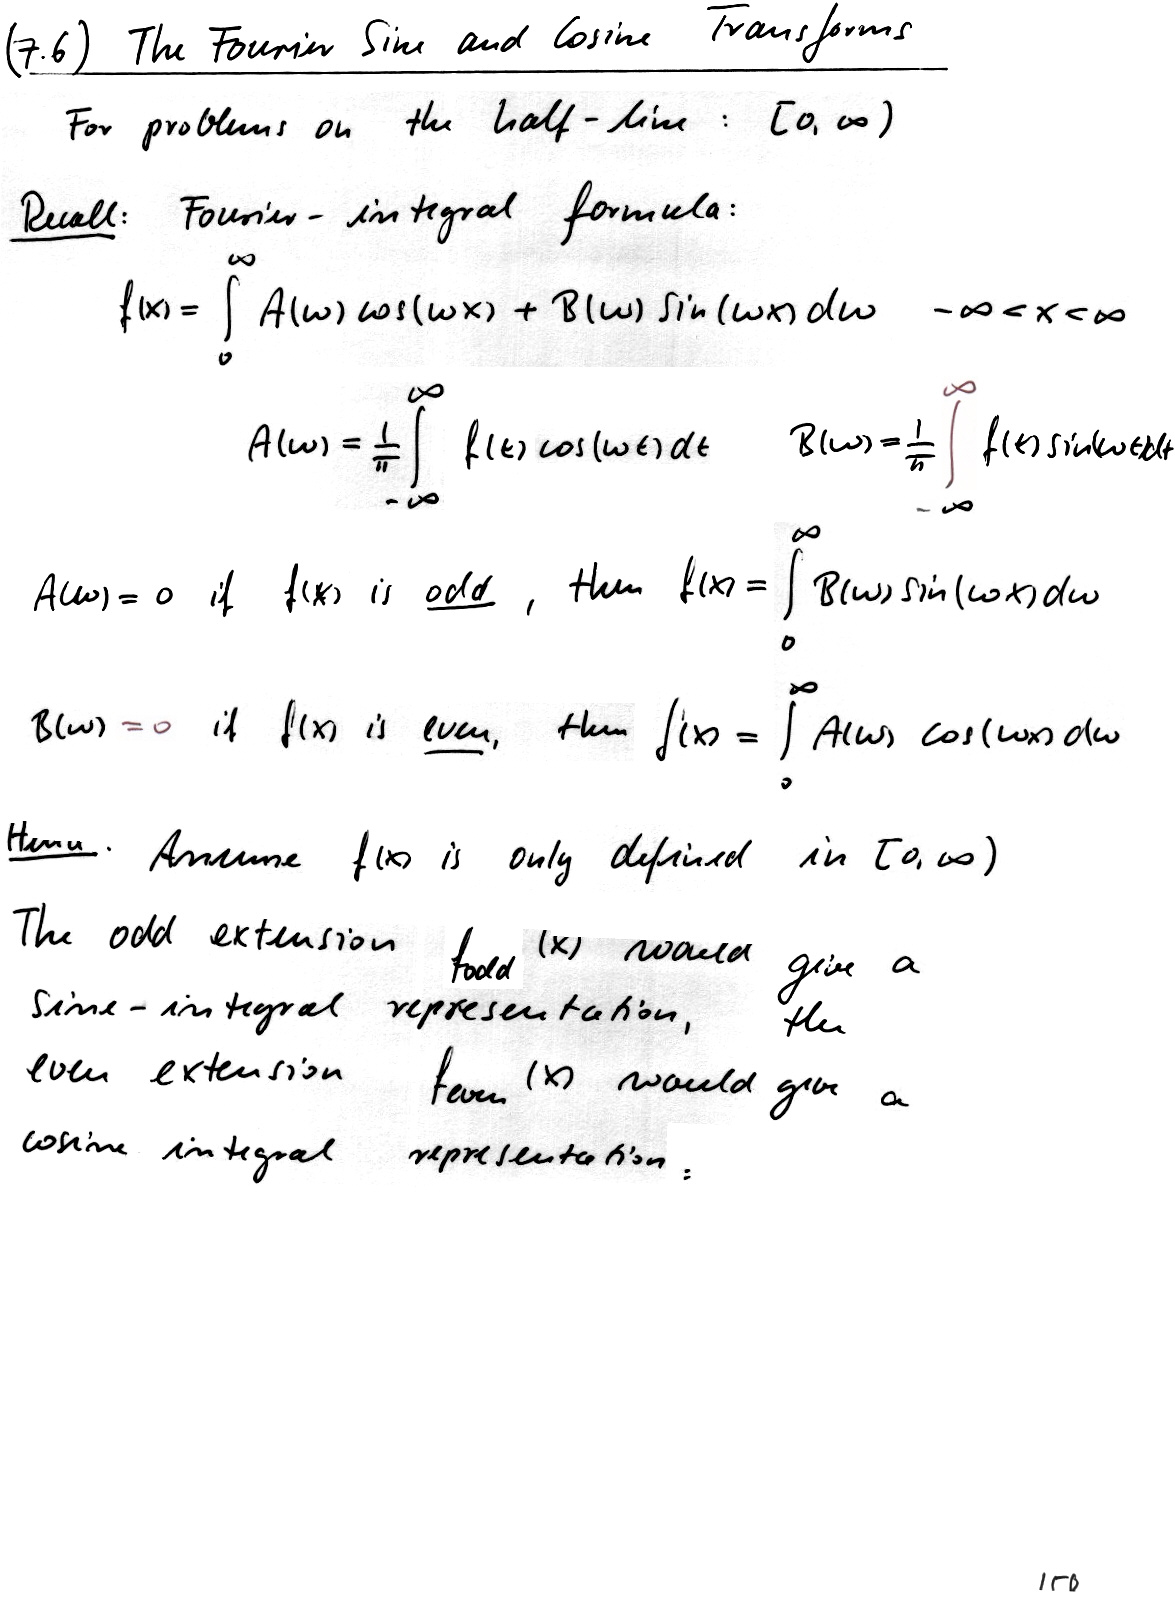 (7.6) The Fourier Sine and Cosine Transforms
For problems on the half-line : [0, ∞)
Recall: Fourier-integral formula:
f(x) = ∫₀^∞ A(ω) cos(ωx) + B(ω) sin(ωx) dω -∞ < x < ∞
A(ω) = 1/π ∫_{-∞}^∞ f(t) cos(ωt) dt B(ω) = 1/π ∫_{-∞}^∞ f(t) sin(ωt) dt
A(ω) = 0 if f(x) is odd, then f(x) = ∫₀^∞ B(ω) sin(ωx) dω
B(ω) = 0 if f(x) is even, then f(x) = ∫₀^∞ A(ω) cos(ωx) dω
Hence. Assume f(x) is only defined in [0, ∞)
The odd extension f_odd (x) would give a
sine-integral representation, the
even extension f_even (x) would give a
cosine integral representation.
150